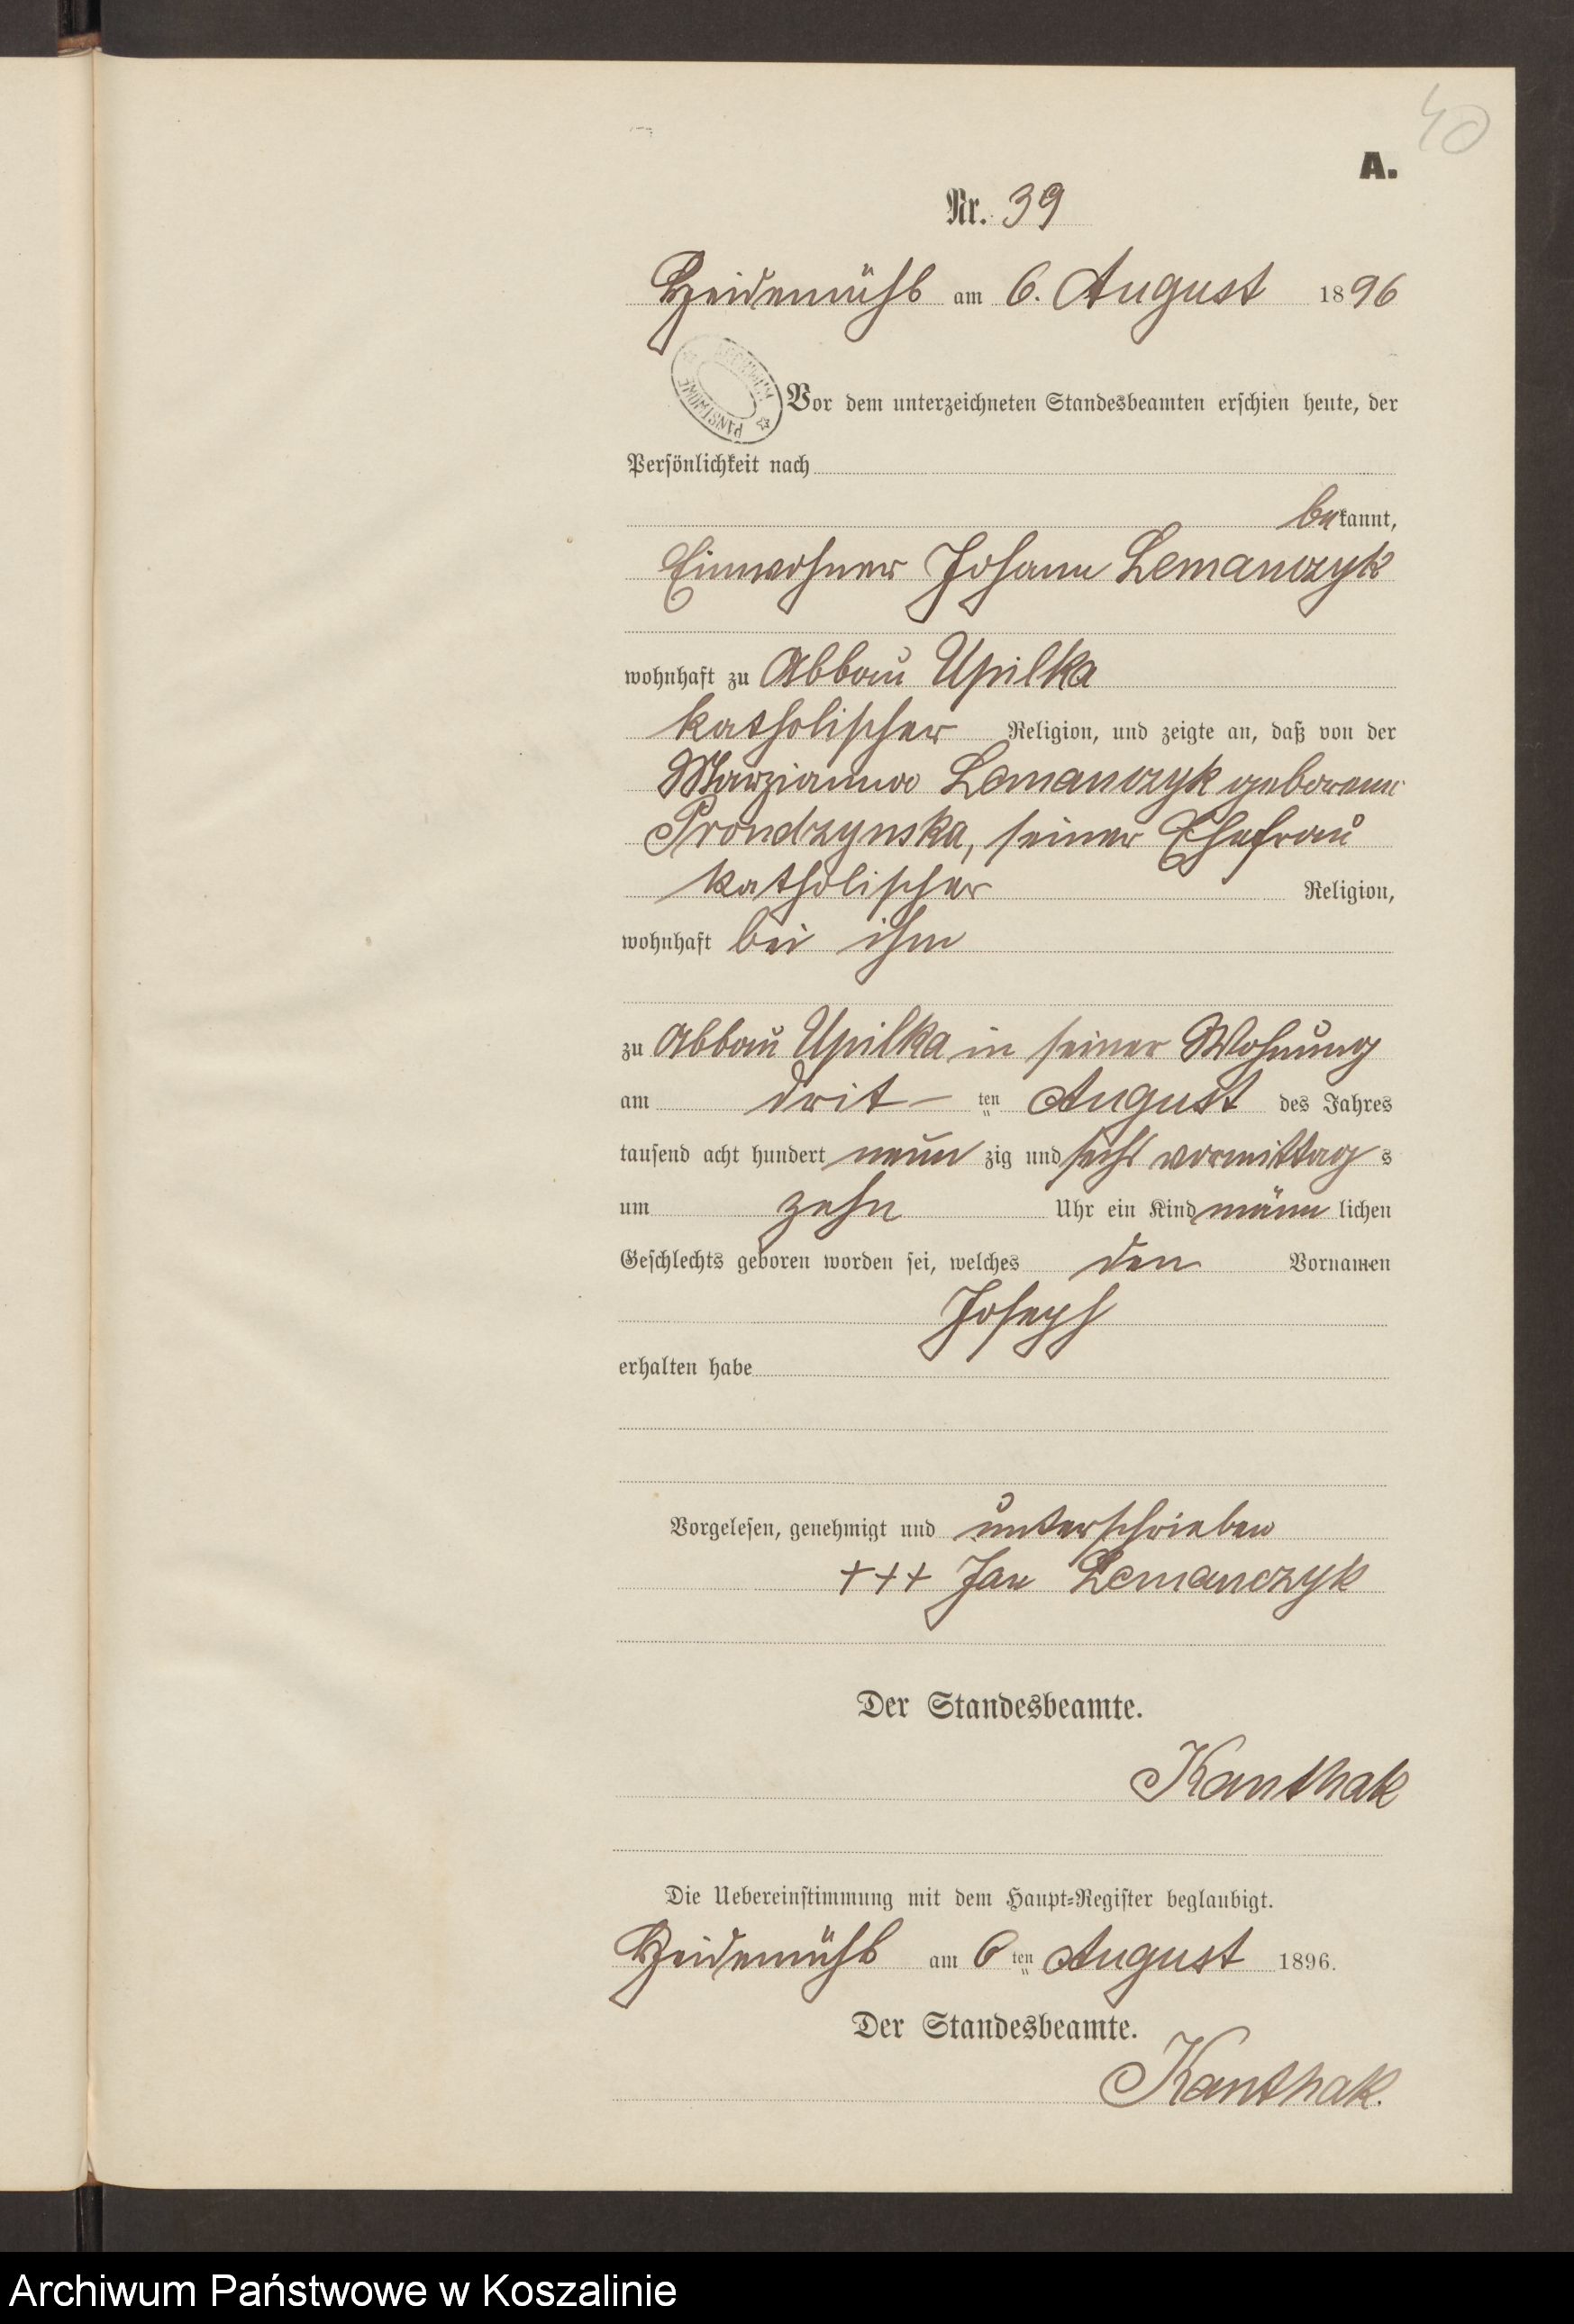 40
A.
Nr. 39
Heidemühl am 6. August 1896
ARCHIWUM PAŃSTWOWE
Vor dem unterzeichneten Standesbeamten erschien heute, der
Persönlichkeit nach
bekannt,
Einwohner Johann Lemanczyk
wohnhaft zu Abbau Upilka
katholischer Religion, und zeigte an, daß von der
Marzianna Lemanczyk geborene
Prondzynska, seiner Ehefrau
katholischer Religion,
wohnhaft bei ihm
zu Abbau Upilka in seiner Wohnung
am drit- ten August des Jahres
tausend acht hundert neun zig und sechs vormittag s
um zehn Uhr ein Kind männ lichen
Geschlechts geboren worden sei, welches den Vornamen
Joseph
erhalten habe
Vorgelesen, genehmigt und unterschrieben
+++ Jan Lemanczyk
Der Standesbeamte.
Kanthak
Die Uebereinstimmung mit dem Haupt=Register beglaubigt.
Heidemühl am 6 ten August 1896.
Der Standesbeamte.
Kanthak.
Archiwum Państwowe w Koszalinie